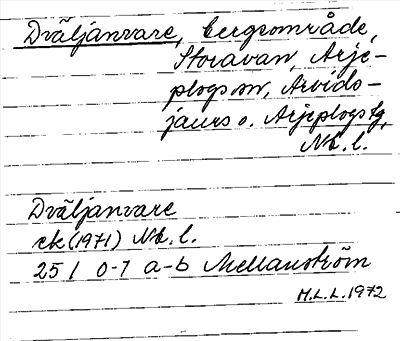 Dväljanvare, bergsområde,
Storavan, Arje-
plogs sn, Arvids-
jaurs o. Arjeplogs tg,
Nb. l.
Dväljanvare
ek (1971) Nb. l.
25 I 0-7 a-b Mellanström
H.L.L. 1972